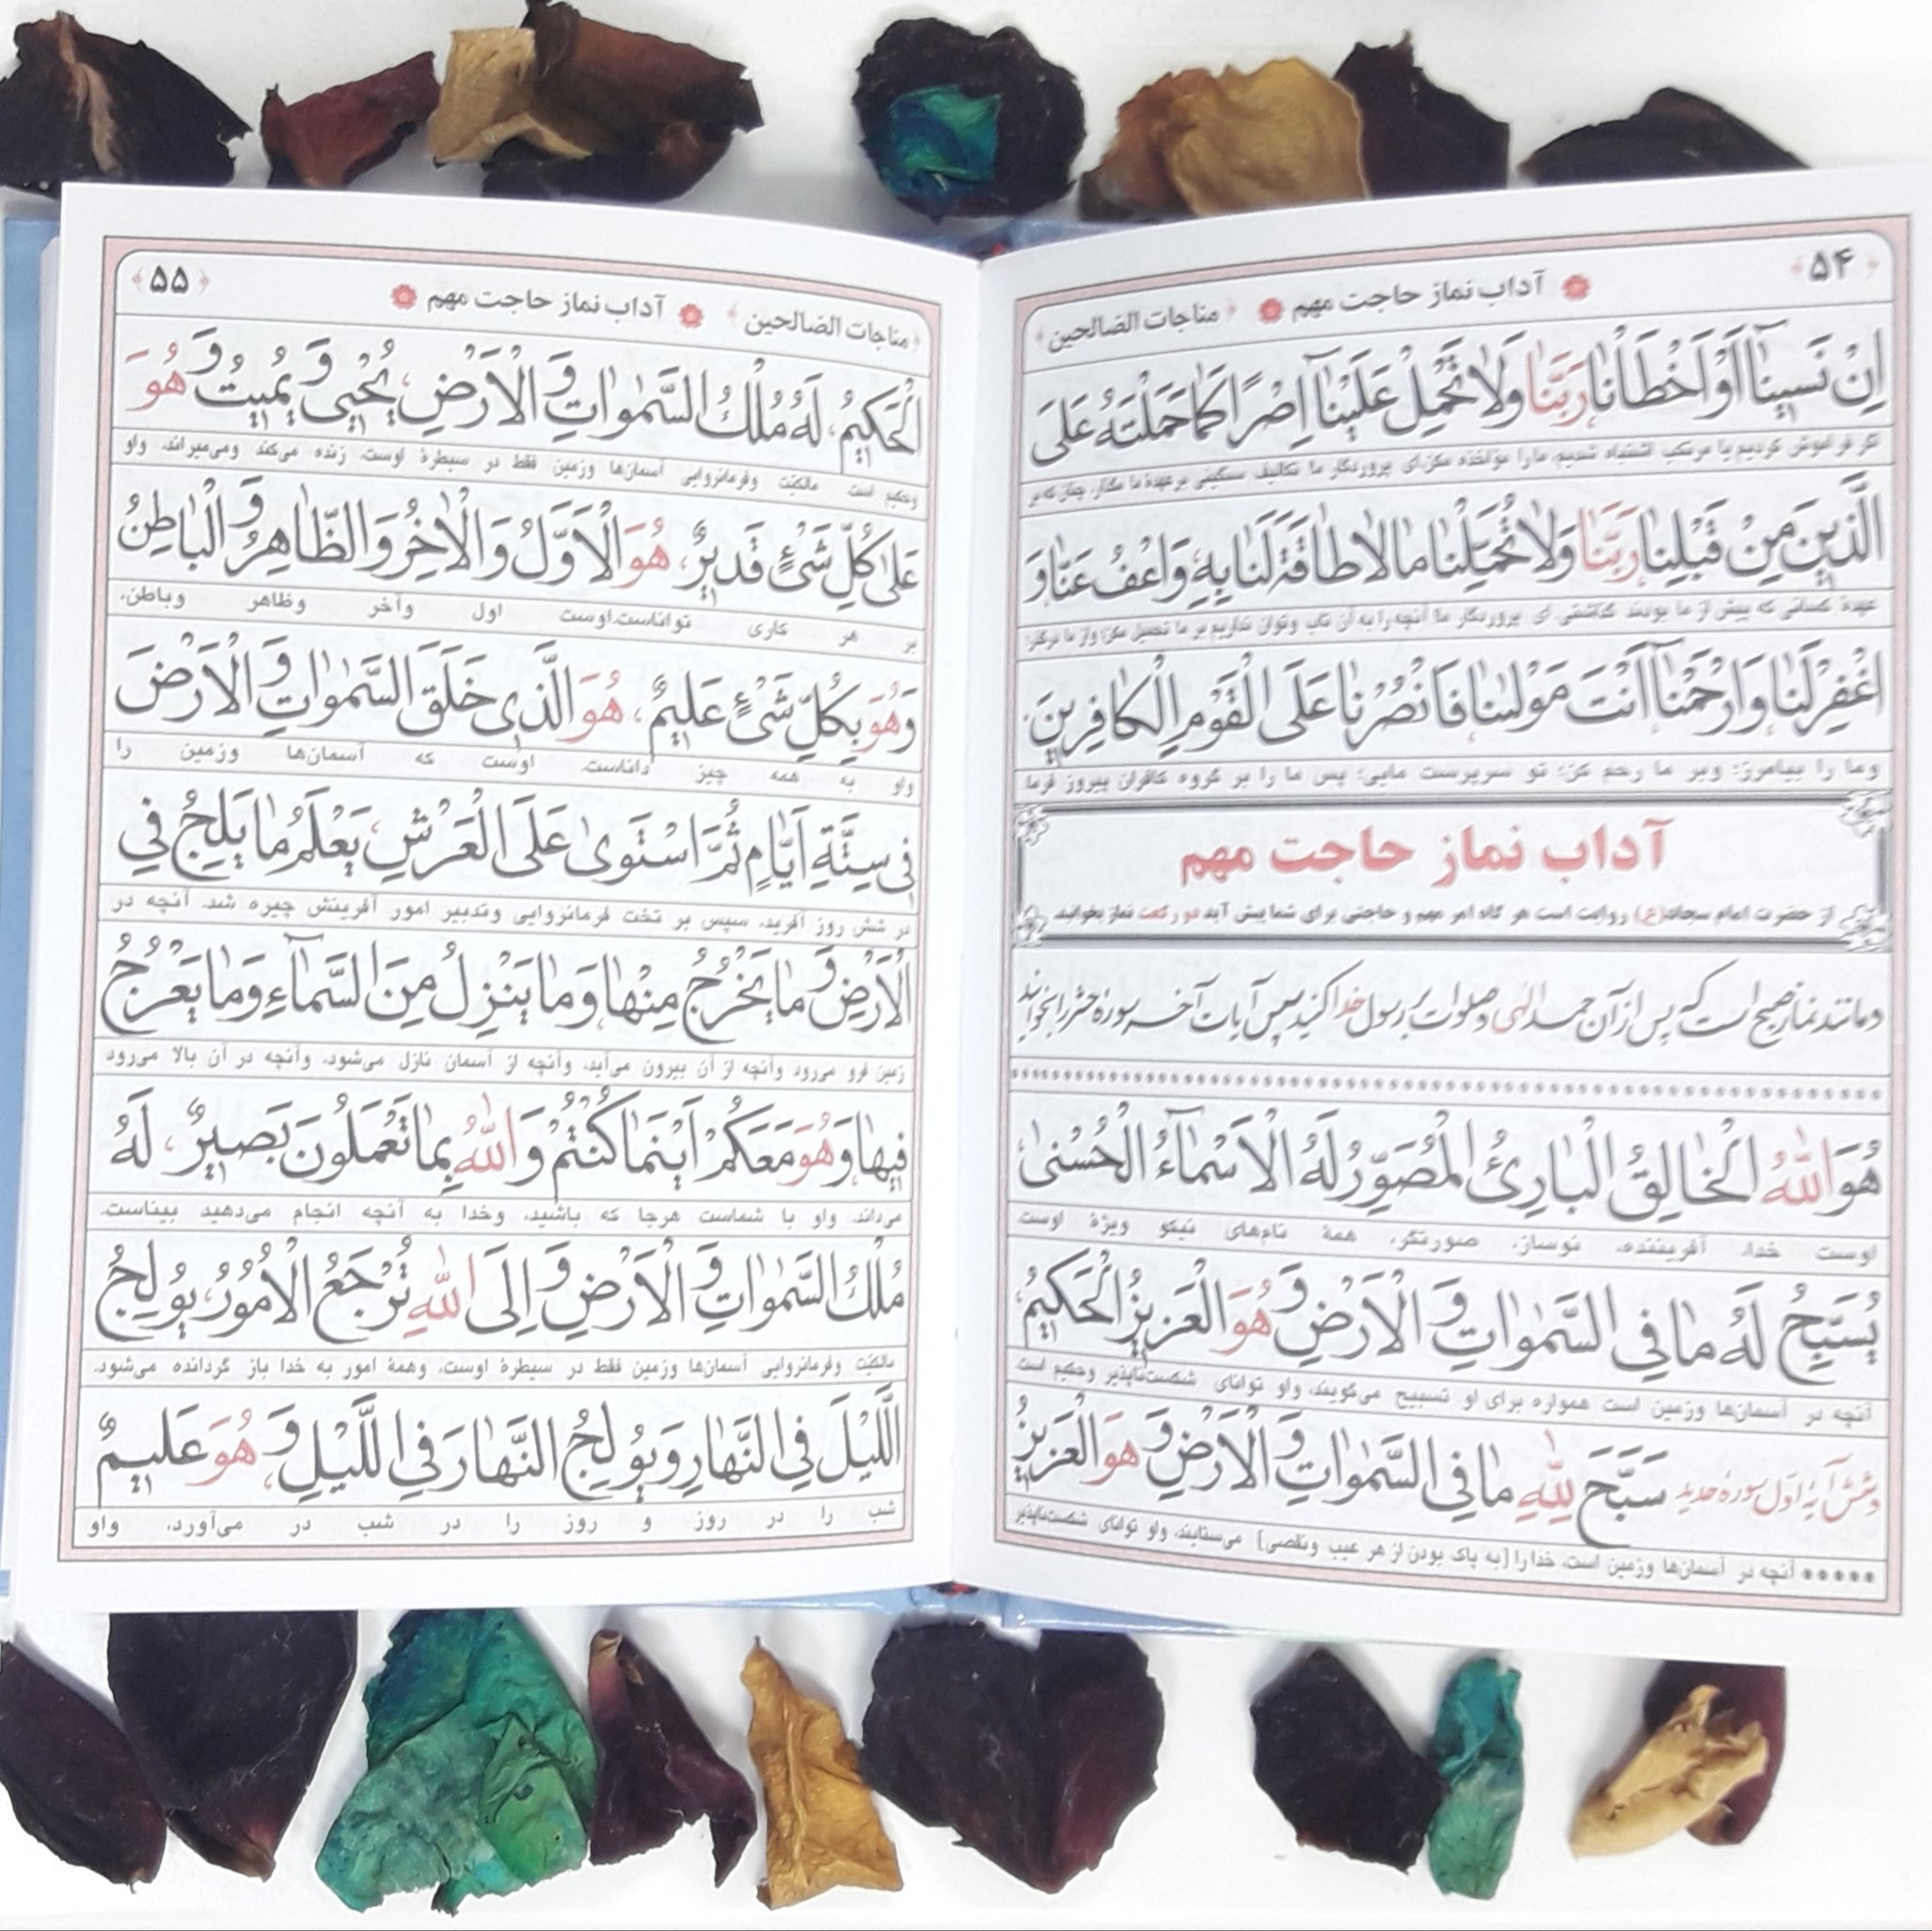 ﴿۵۴﴾ آداب نماز حاجت مهم ﴿مناجات الصالحین﴾
اِنْ نَسینٰآ اَوْ اَخْطَاْنٰا رَبَّنٰا وَلاٰ تَحْمِلْ عَلَیْنٰآ اِصْرًا کَمٰا حَمَلْتَهُ عَلَی
اگر فراموش کردیم یا مرتکب اشتباه شدیم، ما را مؤاخذه مکن؛ ای پروردگار ما تکالیف سنگینی بر عهدهٔ ما مگذار، چنان که بر
الَّذینَ مِنْ قَبْلِنٰا رَبَّنٰا وَلاٰ تُحَمِّلْنٰا مٰا لاٰ طٰاقَةَ لَنٰا بِهِ وَاعْفُ عَنّٰا وَ
عهدهٔ کسانی که پیش از ما بودند گذاشتی. ای پروردگار ما آنچه را به آن تاب وتوان نداریم بر ما تحمیل مکن؛ واز ما درگذر؛
اغْفِرْ لَنٰا وَارْحَمْنٰا اَنْتَ مَوْلیٰنٰا فَانْصُرْنٰا عَلَی الْقَوْمِ الْکٰافِرینَ.
وما را بیامرز؛ وبر ما رحم کن؛ تو سرپرست مایی؛ پس ما را بر گروه کافران پیروز فرما
آداب نماز حاجت مهم
از حضرت امام سجاد(ع) روایت است هر گاه امر مهم و حاجتی برای شما پیش آید دو رکعت نماز بخوانید
ومانند نماز صبح است که پس از آن حمد الهی و صلوات بر رسول خدا کنید سپس آیات آخر سورهٔ حشر را بخوانید
هُوَ اللّٰهُ الْخٰالِقُ الْبٰارِئُ الْمُصَوِّرُ لَهُ الْاَسْمٰآءُ الْحُسْنیٰ،
اوست خدا، آفریننده، نوساز، صورتگر، همهٔ نام‌های نیکو ویژهٔ اوست
یُسَبِّحُ لَهُ مٰا فِی السَّمٰوٰاتِ وَ الْاَرْضِ وَ هُوَ الْعَزیزُ الْحَکیمُ،
آنچه در آسمان‌ها وزمین است همواره برای او تسبیح می‌گویند، واو توانای شکست‌ناپذیر وحکیم است
وشش آیهٔ اول سورهٔ حدید سَبَّحَ لِلّٰهِ مٰا فِی السَّمٰوٰاتِ وَ الْاَرْضِ وَ هُوَ الْعَزیزُ
***** آنچه در آسمان‌ها وزمین است، خدا را [به پاک بودن از هر عیب ونقصی] می‌ستایند، واو توانای شکست‌ناپذیر
﴿مناجات الصالحین﴾ آداب نماز حاجت مهم ﴿۵۵﴾
الْحَکیمُ، لَهُ مُلْكُ السَّمٰوٰاتِ وَ الْاَرْضِ، یُحْیی وَ یُمیتُ وَ هُوَ
وحکیم است مالکیّت وفرمانروایی آسمان‌ها وزمین فقط در سیطرهٔ اوست، زنده می‌کند ومی‌میراند، واو
عَلیٰ کُلِّ شَیْءٍ قَدیرٌ، هُوَ الْاَوَّلُ وَ الْاٰخِرُ وَ الظّٰاهِرُ وَ الْبٰاطِنُ
بر هر کاری تواناست.اوست اول وآخر وظاهر وباطن،
وَ هُوَ بِکُلِّ شَیْءٍ عَلیمٌ، هُوَ الَّذی خَلَقَ السَّمٰوٰاتِ وَ الْاَرْضَ
واو به همه چیز داناست. اوست که آسمان‌ها وزمین را
فی سِتَّةِ اَیّٰامٍ ثُمَّ اسْتَویٰ عَلَی الْعَرْشِ، یَعْلَمُ مٰا یَلِجُ فِی
در شش روز آفرید، سپس بر تخت فرمانروایی وتدبیر امور آفرینش چیره شد. آنچه در
الْاَرْضِ وَ مٰا یَخْرُجُ مِنْهٰا وَ مٰا یَنْزِلُ مِنَ السَّمٰآءِ وَ مٰا یَعْرُجُ
زمین فرو می‌رود وآنچه از آن بیرون می‌آید، وآنچه از آسمان نازل می‌شود، وآنچه در آن بالا می‌رود
فیهٰا، وَ هُوَ مَعَکُمْ اَیْنَمٰا کُنْتُمْ وَ اللّٰهُ بِمٰا تَعْمَلُونَ بَصیرٌ، لَهُ
می‌داند. واو با شماست هرجا که باشید، وخدا به آنچه انجام می‌دهید بیناست.
مُلْكُ السَّمٰوٰاتِ وَ الْاَرْضِ وَ اِلَی اللّٰهِ تُرْجَعُ الْاُمُورُ، یُولِجُ
مالکیّت وفرمانروایی آسمان‌ها وزمین فقط در سیطرهٔ اوست، وهمهٔ امور به خدا باز گردانده می‌شود.
اللَّیْلَ فِی النَّهٰارِ وَ یُولِجُ النَّهٰارَ فِی اللَّیْلِ، وَ هُوَ عَلیمٌ
شب را در روز و روز را در شب در می‌آورد، واو